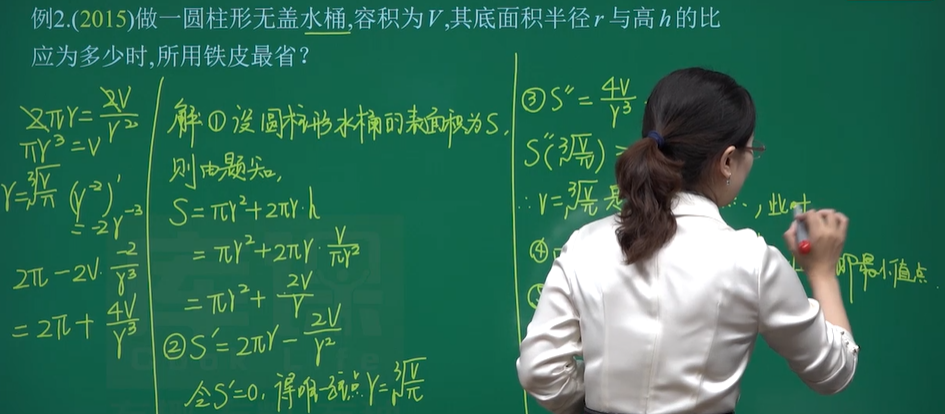 例2.(2015)做一圆柱形无盖水桶,容积为V,其底面积半径r与高h的比
应为多少时,所用铁皮最省?
2πr=2V/r²
πr³=V
r=∛(V/π) (r⁻²)′
=-2r⁻³
2π-2V·-2/r³
=2π+4V/r³
解①设圆柱形水桶的表面积为S,
则由题知,
S=πr²+2πr·h
=πr²+2πr·V/πr²
=πr²+2V/r
②S′=2πr-2V/r²
令S′=0,得唯一驻点r=∛(V/π)
③S″=4V/r³
S″(∛(V/π))=
∴r=∛(V/π)是 ,此时
④ 即最小值点